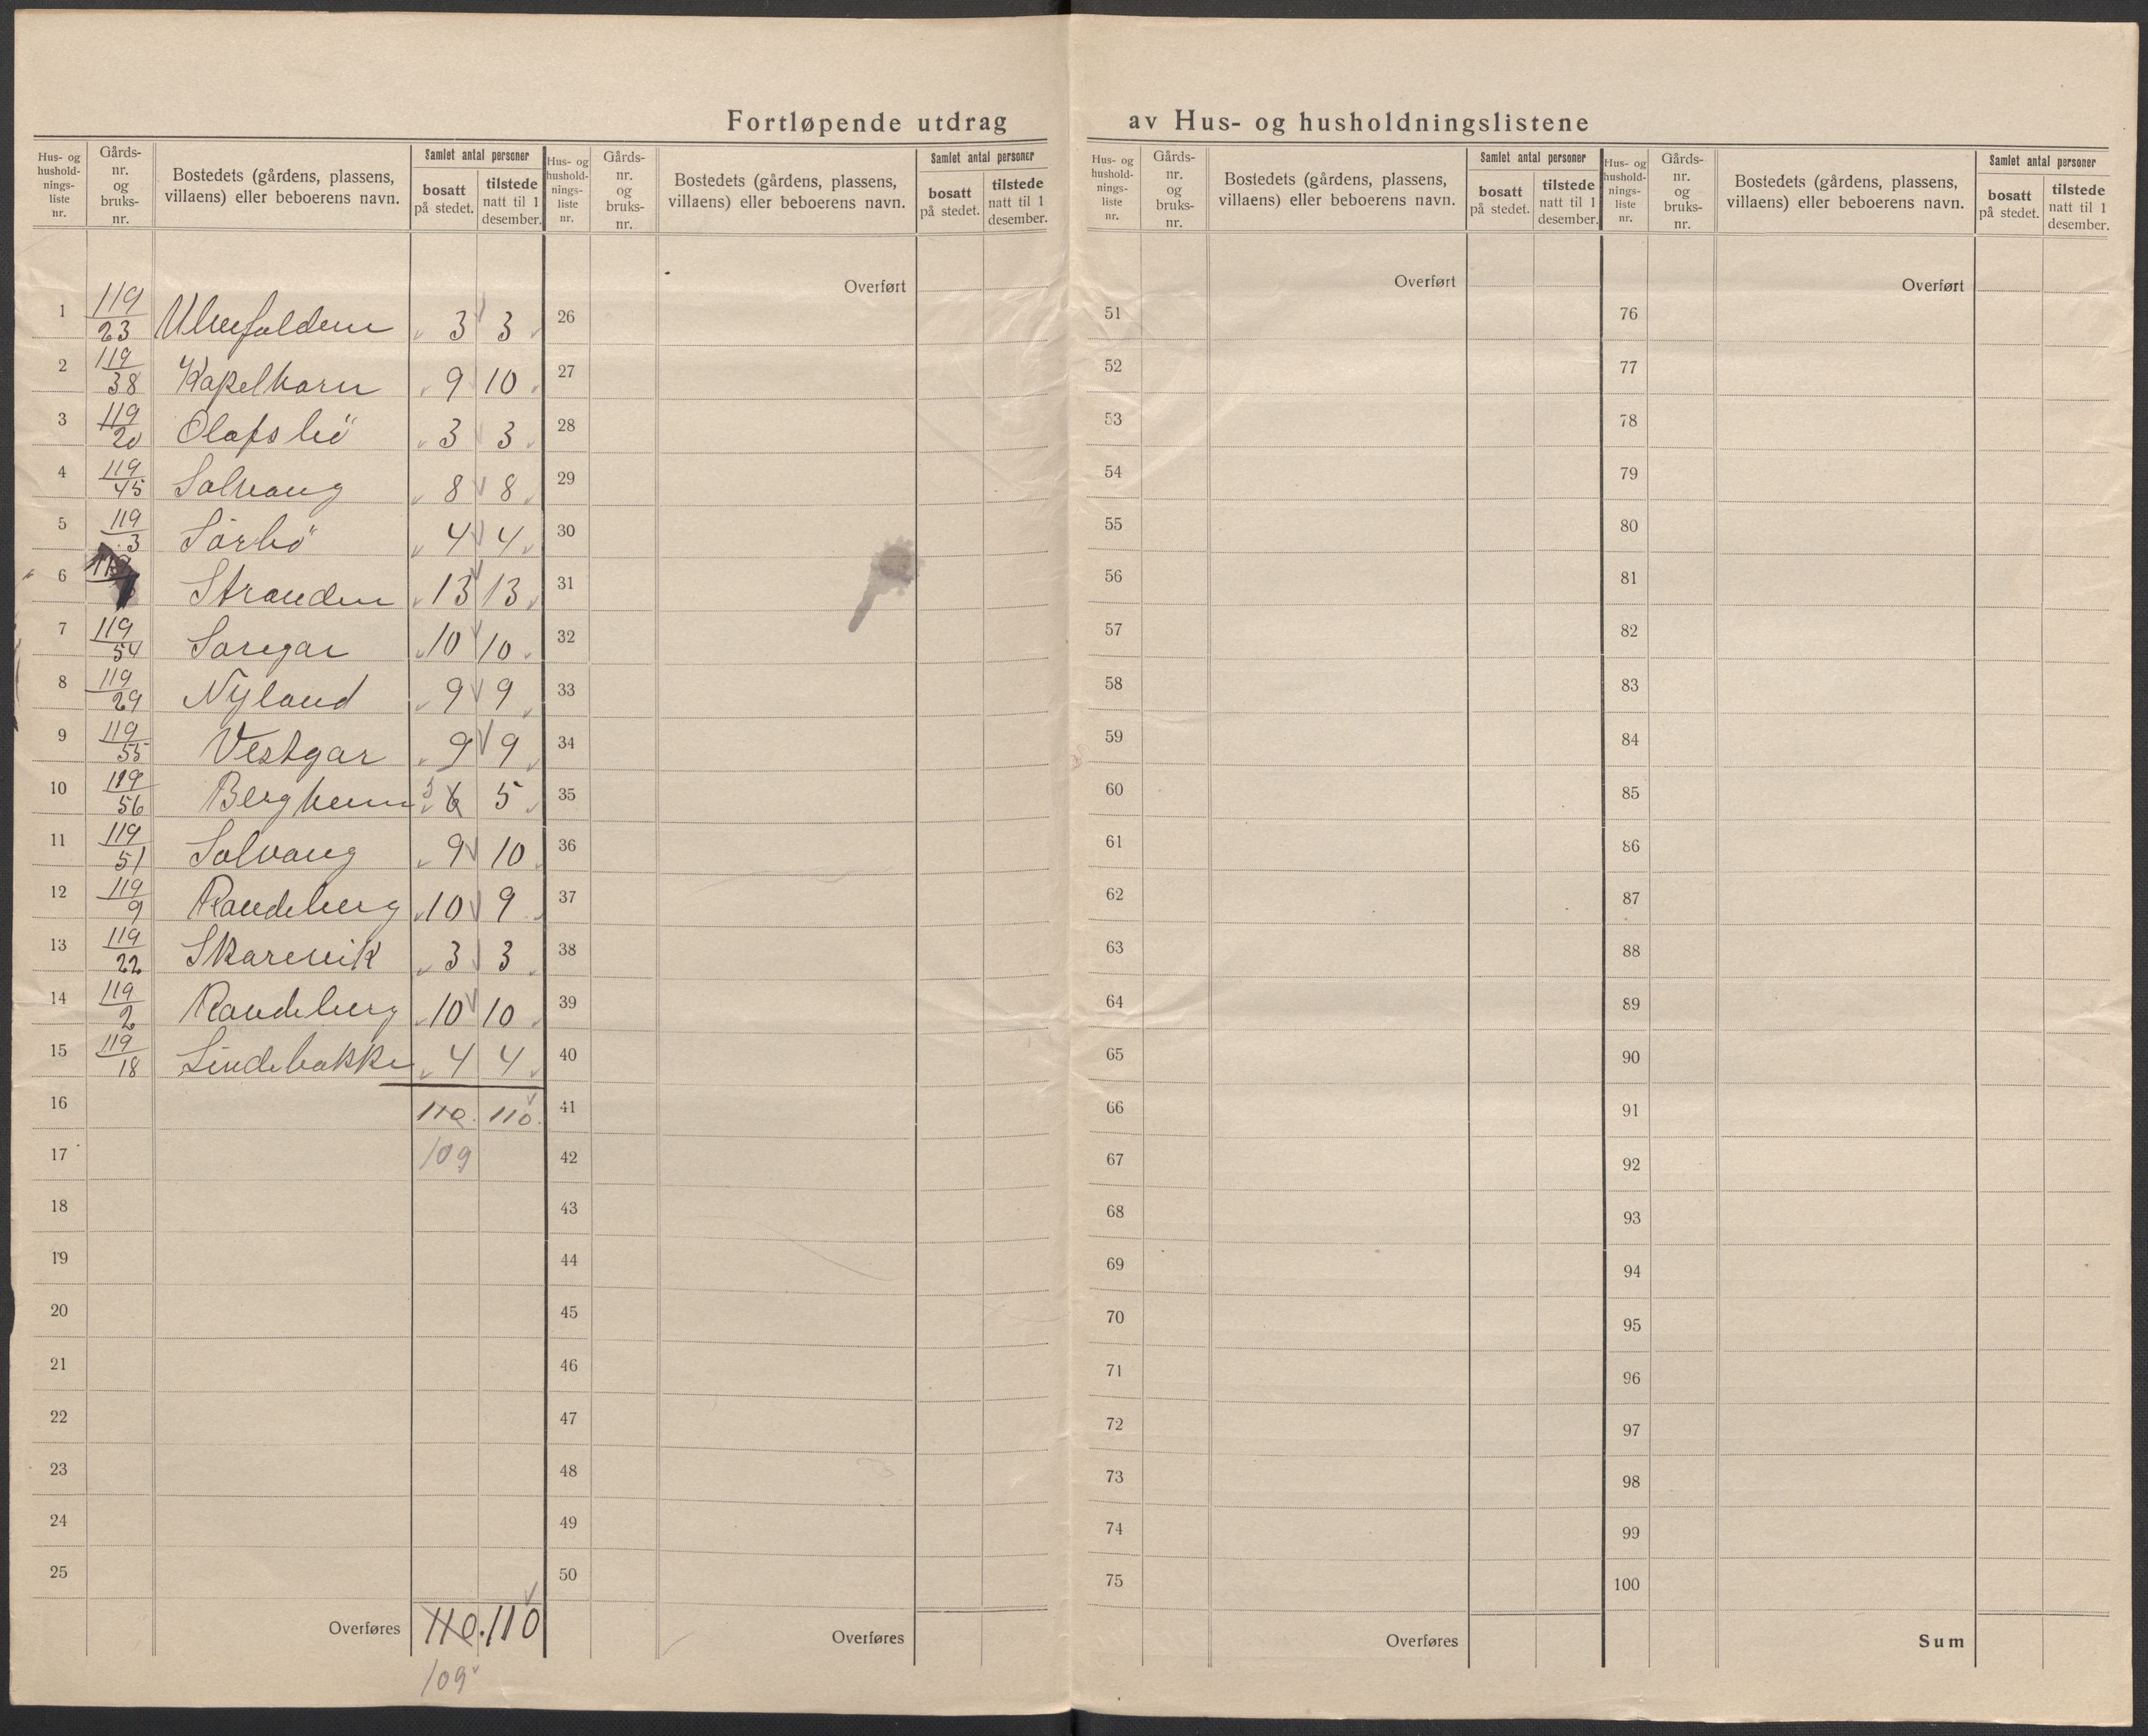 Fortløpende utdrag av Hus- og husholdningslistene
Hus- og hushold- nings- liste nr.
Gårds- nr. og bruks- nr.
Bostedets (gårdens, plassens, villaens) eller beboerens navn.
Samlet antal personer
bosatt på stedet.
tilstede natt til 1 desember.
1 119/23 3 3
2 119/38 9 10
3 119/20 Olafsbö 3 3
4 119/45 Solvang 8 8
5 119/3 Sörbö 4 4
6 Stranden 13 13
7 119/54 Sørgar 10 10
8 119/29 Nyland 9 9
9 119/55 Vestgar 9 9
10 119/56 Bergheim 5 6 5
11 119/51 Solvang 9 10
12 119/9 Randeberg 10 9
13 119/22 Skarevik 3 3
14 119/2 Randeberg 10 10
15 119/18 Lindebakke 4 4
16 110. 110
17 109
18
19
20
21
22
23
24
25
Overføres 110. 110
109
Hus- og hushold- nings- liste nr.
Gårds- nr. og bruks- nr.
Bostedets (gårdens, plassens, villaens) eller beboerens navn.
Samlet antal personer
bosatt på stedet.
tilstede natt til 1 desember.
Overført
26
27
28
29
30
31
32
33
34
35
36
37
38
39
40
41
42
43
44
45
46
47
48
49
50
Overføres
Hus- og hushold- nings- liste nr.
Gårds- nr. og bruks- nr.
Bostedets (gårdens, plassens, villaens) eller beboerens navn.
Samlet antal personer
bosatt på stedet.
tilstede natt til 1 desember.
Overført
51
52
53
54
55
56
57
58
59
60
61
62
63
64
65
66
67
68
69
70
71
72
73
74
75
Overføres
Hus- og hushold- nings- liste nr.
Gårds- nr. og bruks- nr.
Bostedets (gårdens, plassens, villaens) eller beboerens navn.
Samlet antal personer
bosatt på stedet.
tilstede natt til 1 desember.
Overført
76
77
78
79
80
81
82
83
84
85
86
87
88
89
90
91
92
93
94
95
96
97
98
99
100
Sum